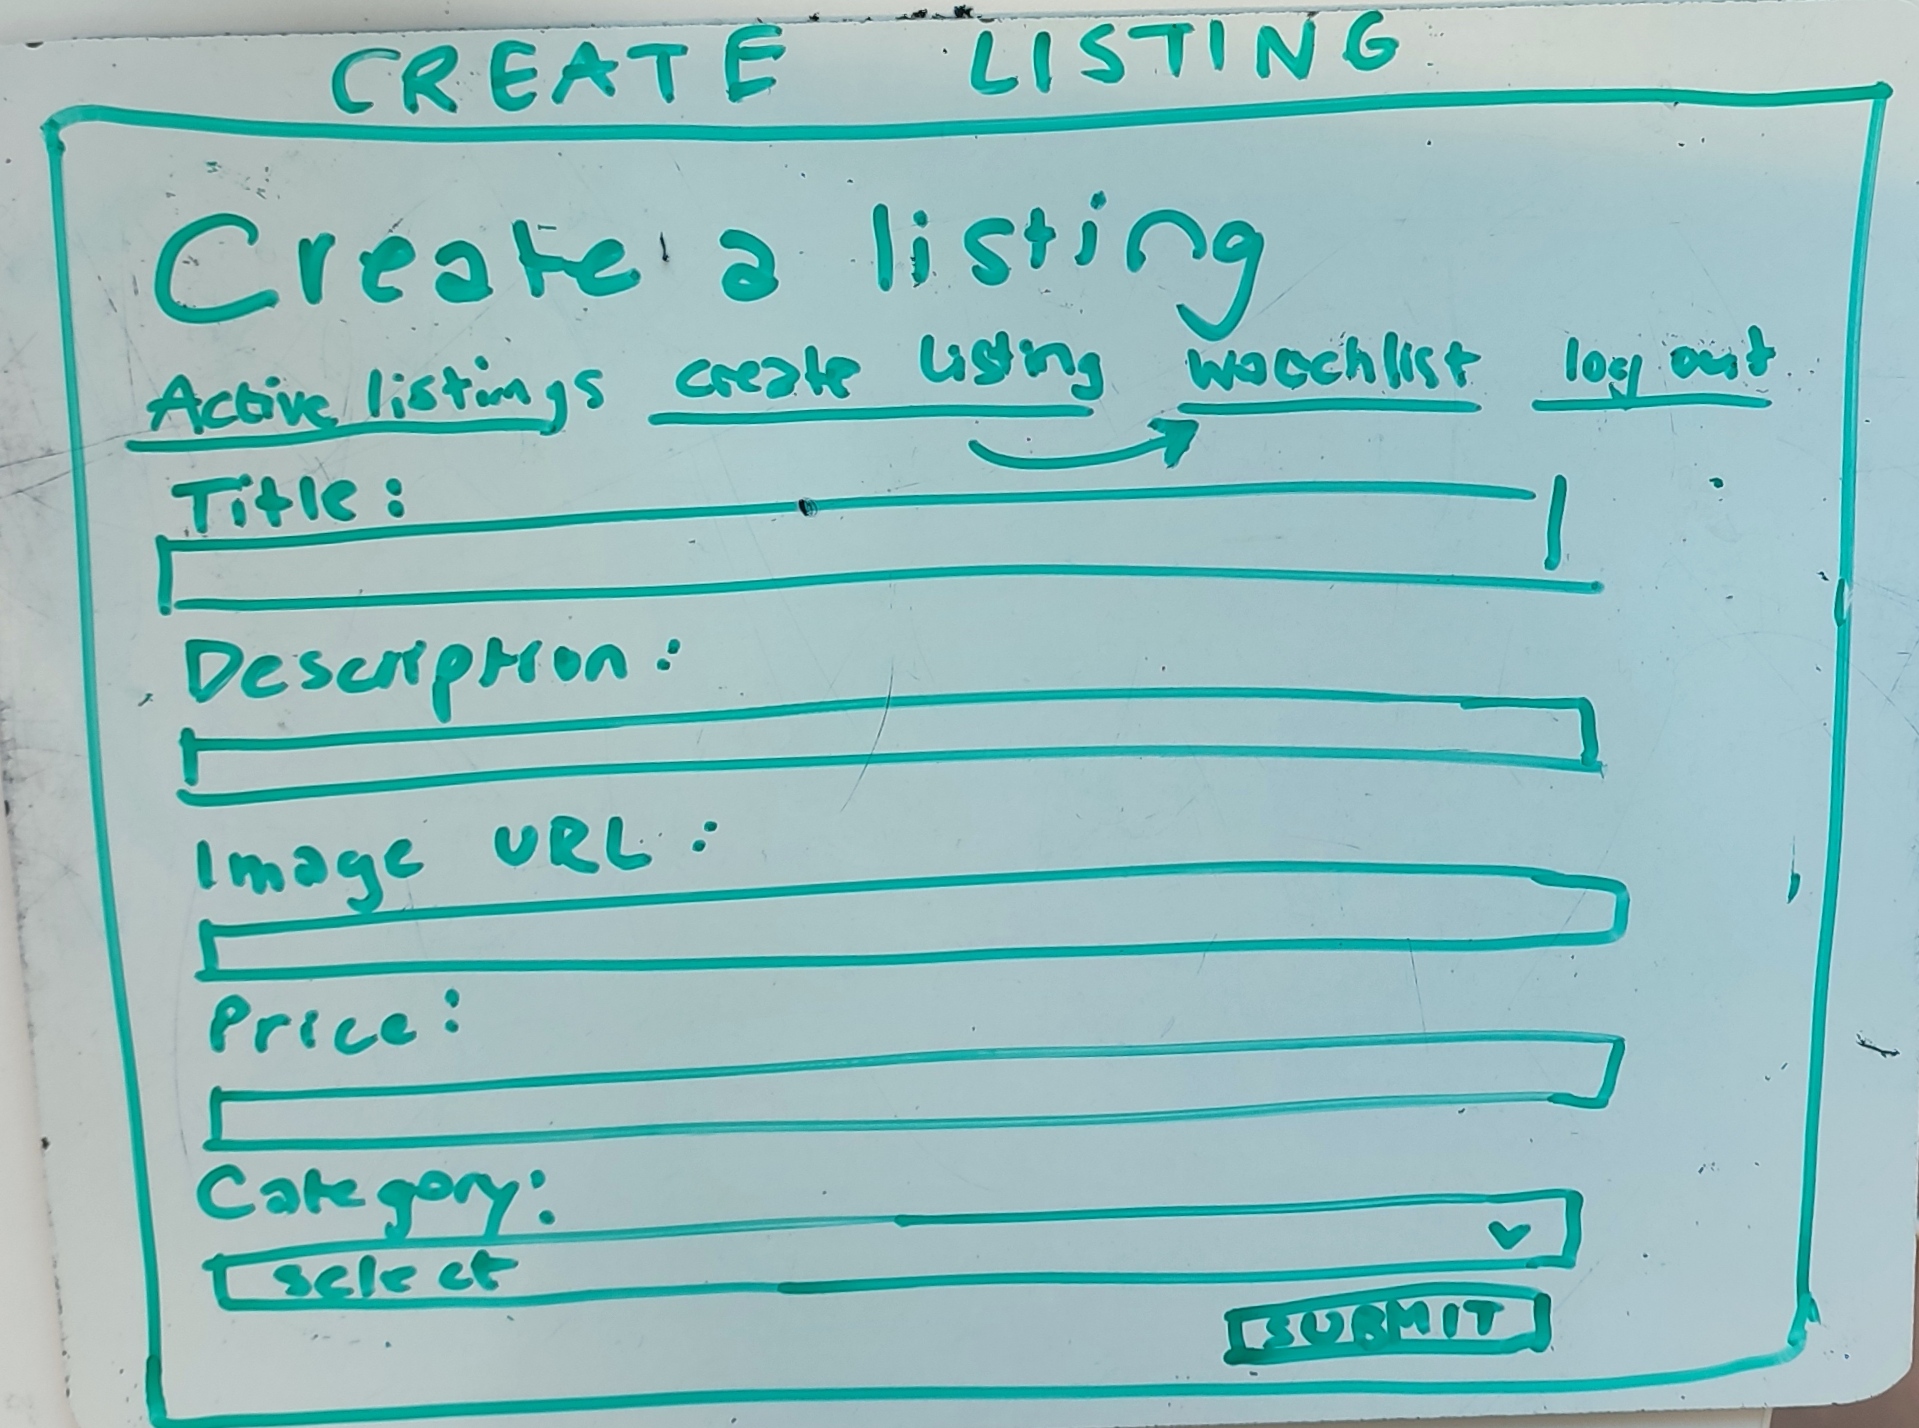 CREATE LISTING
Create a listing
Active listings create listing watchlist log out
Title:
Description:
Image URL:
Price:
Category:
select
SUBMIT